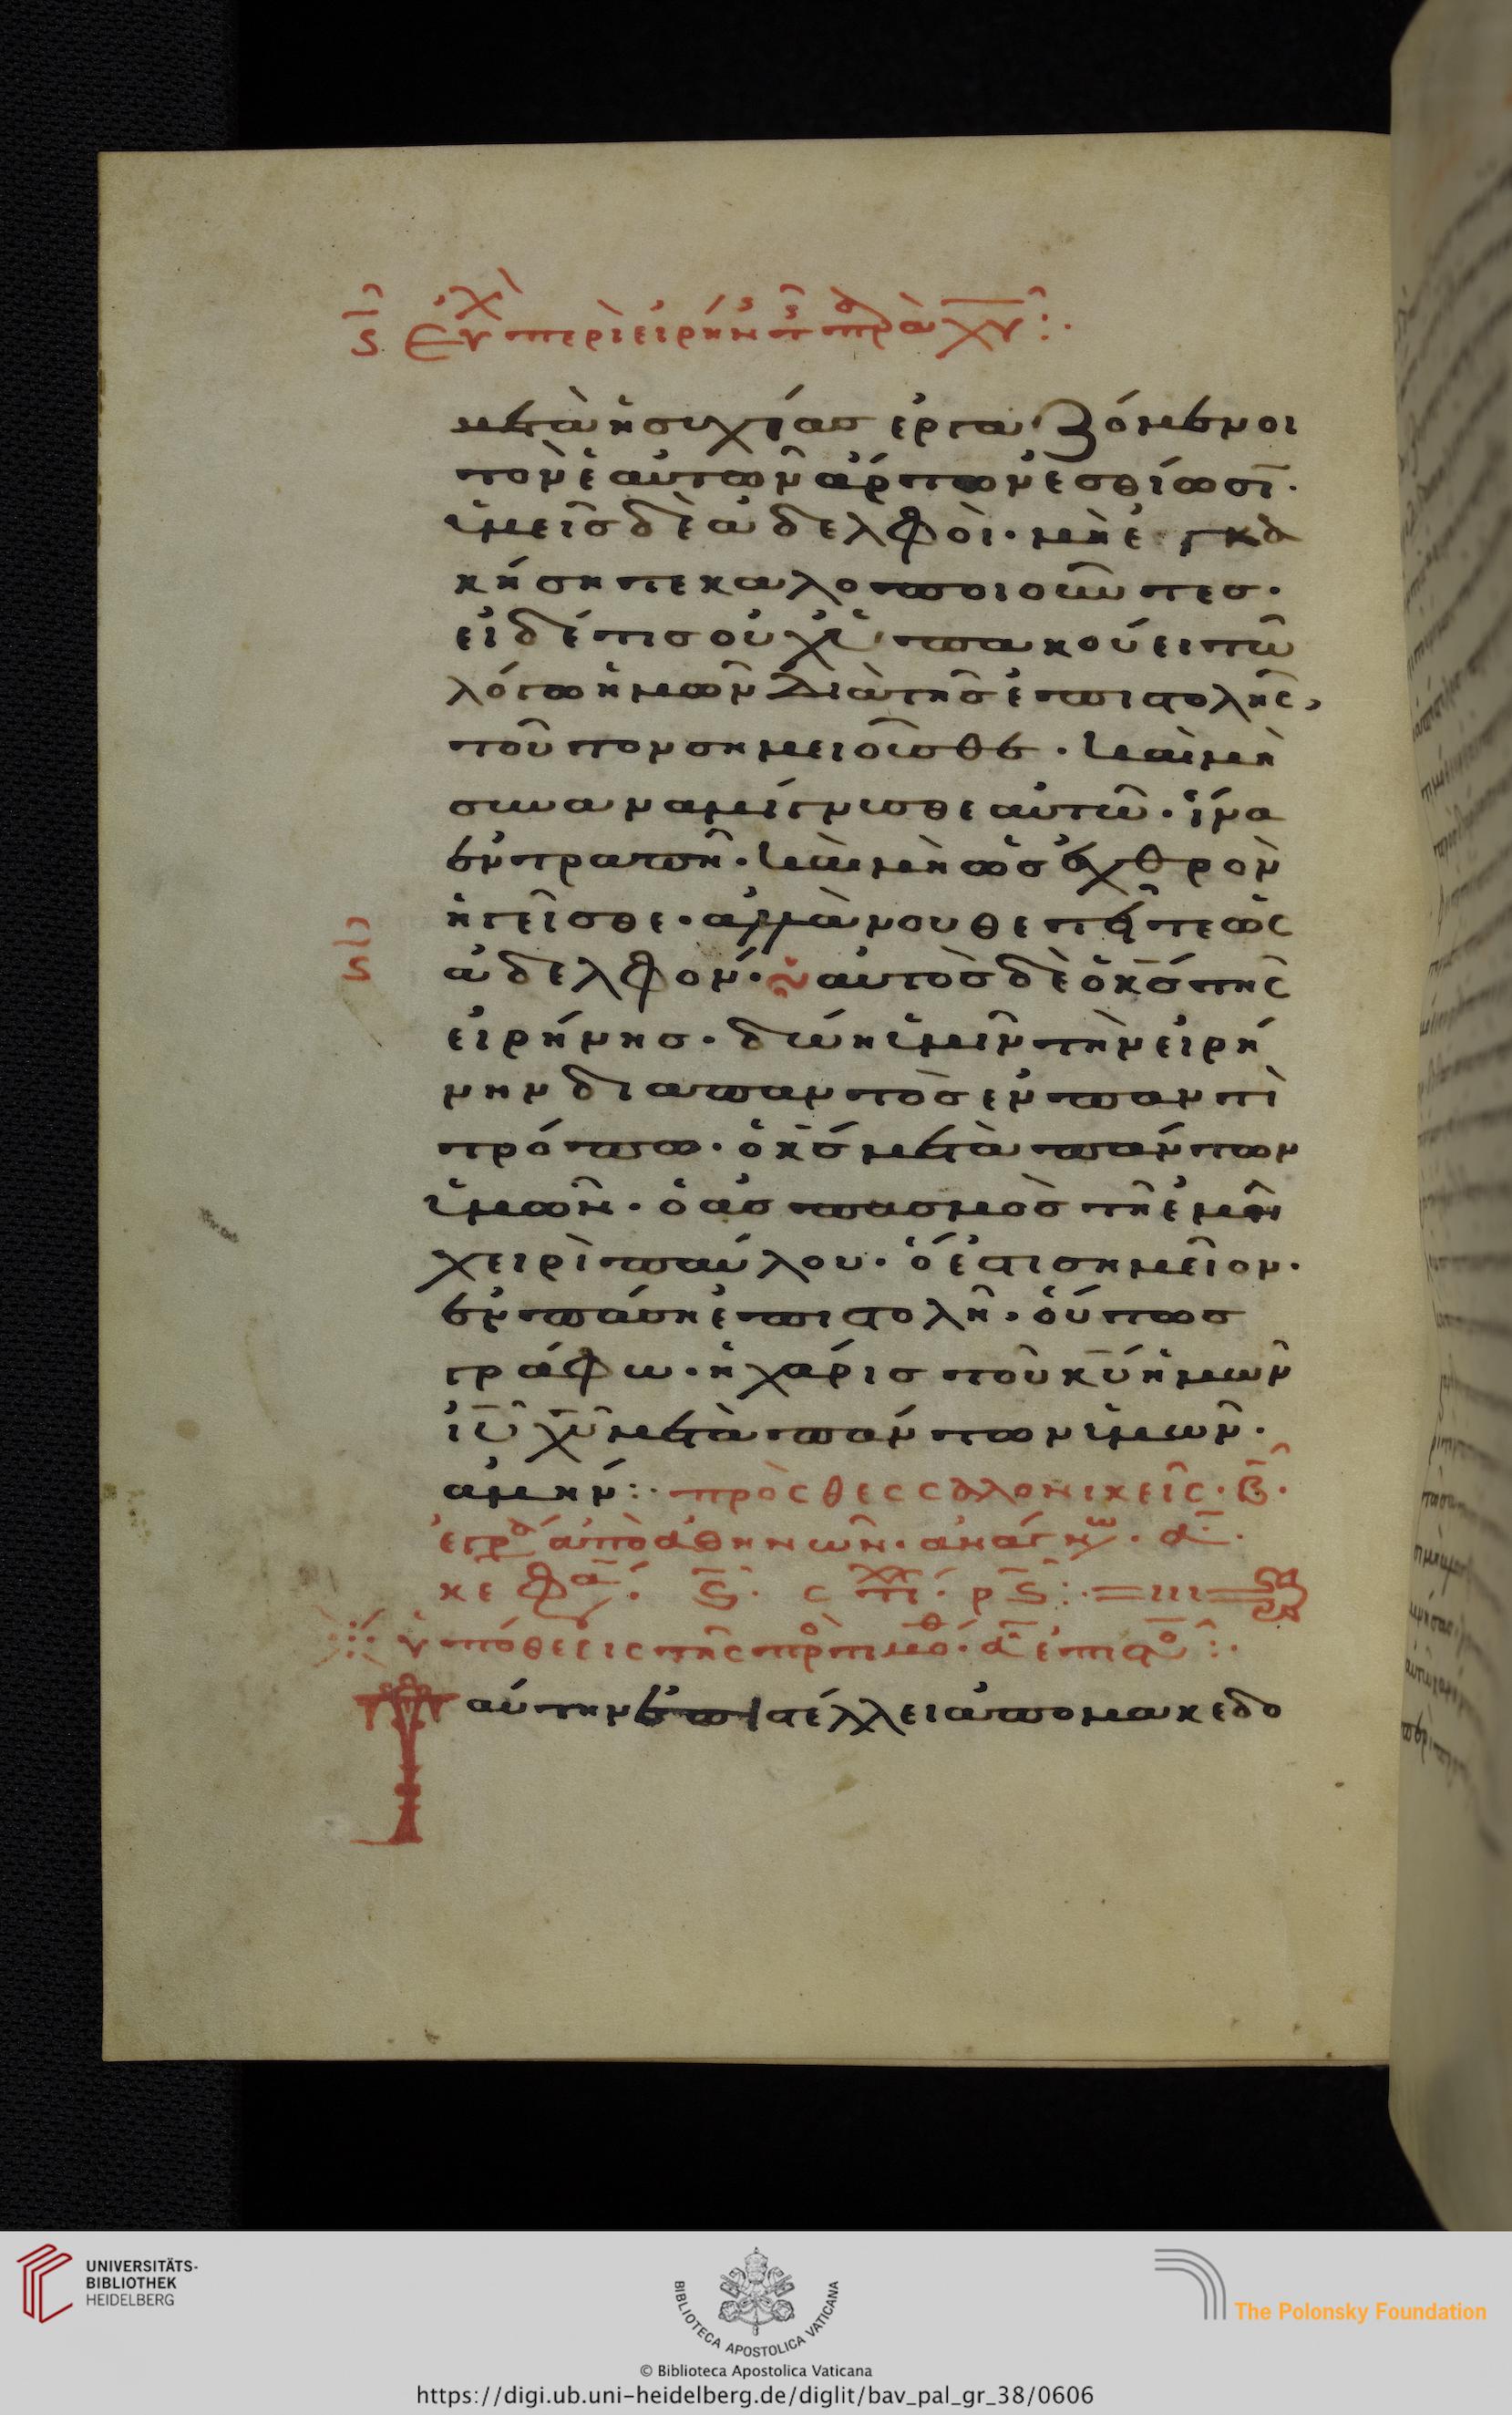 ς Εὐχ περὶ εἰρήν
μετὰ ἡσυχίας ἐργαζόμενοι
τὸν ἑαυτῶν ἄρτων ἐσθίωσῖ·
ὑμεῖς δὲ ἀδελφοὶ· μὴ ἐγκα
κήσητε καλοποιοῦντες·
εἰ δέ τις οὐχ ὑπακούει τῶ
λόγω ἡμῶν διὰ τῆς ἐπιστολῆς,
τοῦτον σημειοῦσθε· καὶ μὴ
συναναμίγνυσθε αὐτῶ· ἵνα
ἐντραπῆ· καὶ μὴ ὡς ἐχθρὸν
ἡγεῖσθε· ἀλλὰ νουθετεῖτε ὡς
ἀδελφόν· αὐτὸς δὲ ὁ κς τῆς
εἰρήνης· δώη ὑμῖν τὴν εἰρή
νην διαπαντὸς ἐν παντὶ
τρόπω· ὁ κς μετὰ πάντων
ὑμῶν· ὁ ἀσπασμὸς τῆ ἐμῆ
χειρὶ παύλου· ὅ ἐστι σημεῖον·
ἐν πάση ἐπιστολῆ· οὕτως
γράφω· ἡ χάρις τοῦ κυ ἡμῶν
ἰυ χυ μετὰ πάντων ὑμῶν·
ἀμήν:· πρὸς θεσσαλονικεῖς· β·
ἐγρ ἀπὸ ἀθηνῶν· ἀναγν· α·
κεφα· ς· στι· ρς:·
ὑπόθεσις τῆς πρ τιμοθ· α ἐπιστο:·
Ταύτην ἐπιστέλλει ἀπὸ μακεδο
UNIVERSITÄTS-
BIBLIOTHEK
HEIDELBERG
BIBLIOTECA APOSTOLICA VATICANA
The Polonsky Foundation
© Biblioteca Apostolica Vaticana
https://digi.ub.uni-heidelberg.de/diglit/bav_pal_gr_38/0606